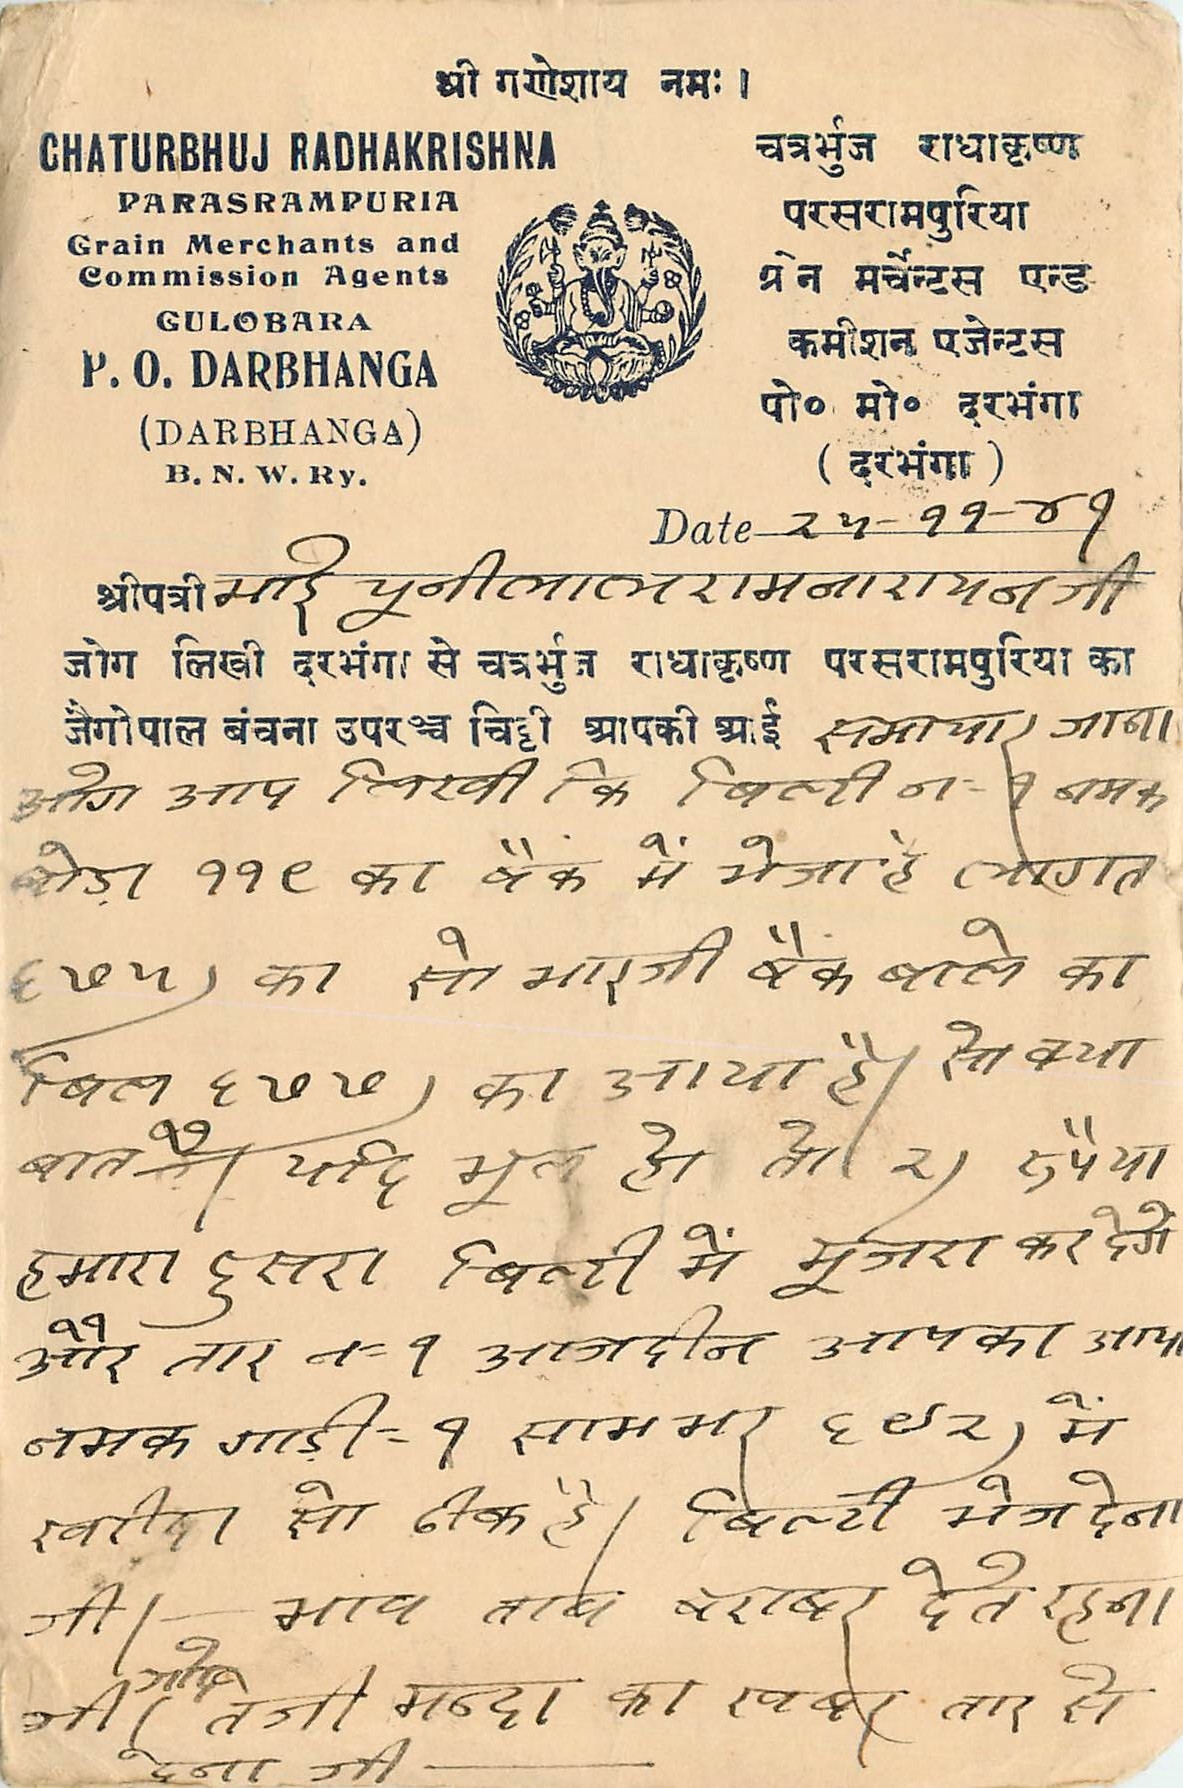 श्री गणेशाय नमः।
CHATURBHUJ RADHAKRISHNA
PARASRAMPURIA
Grain Merchants and
Commission Agents
GULOBARA
P. O. DARBHANGA
(DARBHANGA)
B. N. W. Ry.
चत्रर्भुज राधाकृष्ण
परसरामपुरिया
ग्रेन मर्चेन्टस एन्ड
कमीशन एजेन्टस
पो० मो० दरभंगा
(दरभंगा)
Date २५-११-४१
श्रीपत्री भाई चूनीलाल रामनारायन जी
जोग लिखी दरभंगा से चत्रर्भुज राधाकृष्ण परसरामपुरिया का
जैगोपाल बंचना उपरञ्च चिट्टी आपकी आई समाचार जाना
आप लिखी कि बिल्टी न- १ नमक
बोड़ा ११९ का बैंक में भेजा है लागत
६७५) का सो भाइजी बैंक बाले का
बिल ६७७) का आया है। सो क्या
बात है। यदि भूल हो तो २) रुपैया
हमारा दुसरा बिल्टी में मूजरा कर देगें
और तार न- १ आजदीन आपका आया
नमक गाड़ी- १ सामभर ६९२) में
खरीदा सो ठीक है। बिल्टी भेज देना
जी।— भाव ताव बराबर देते रहना
जी। तेजी मन्दा का खबर तार से
देना जी —